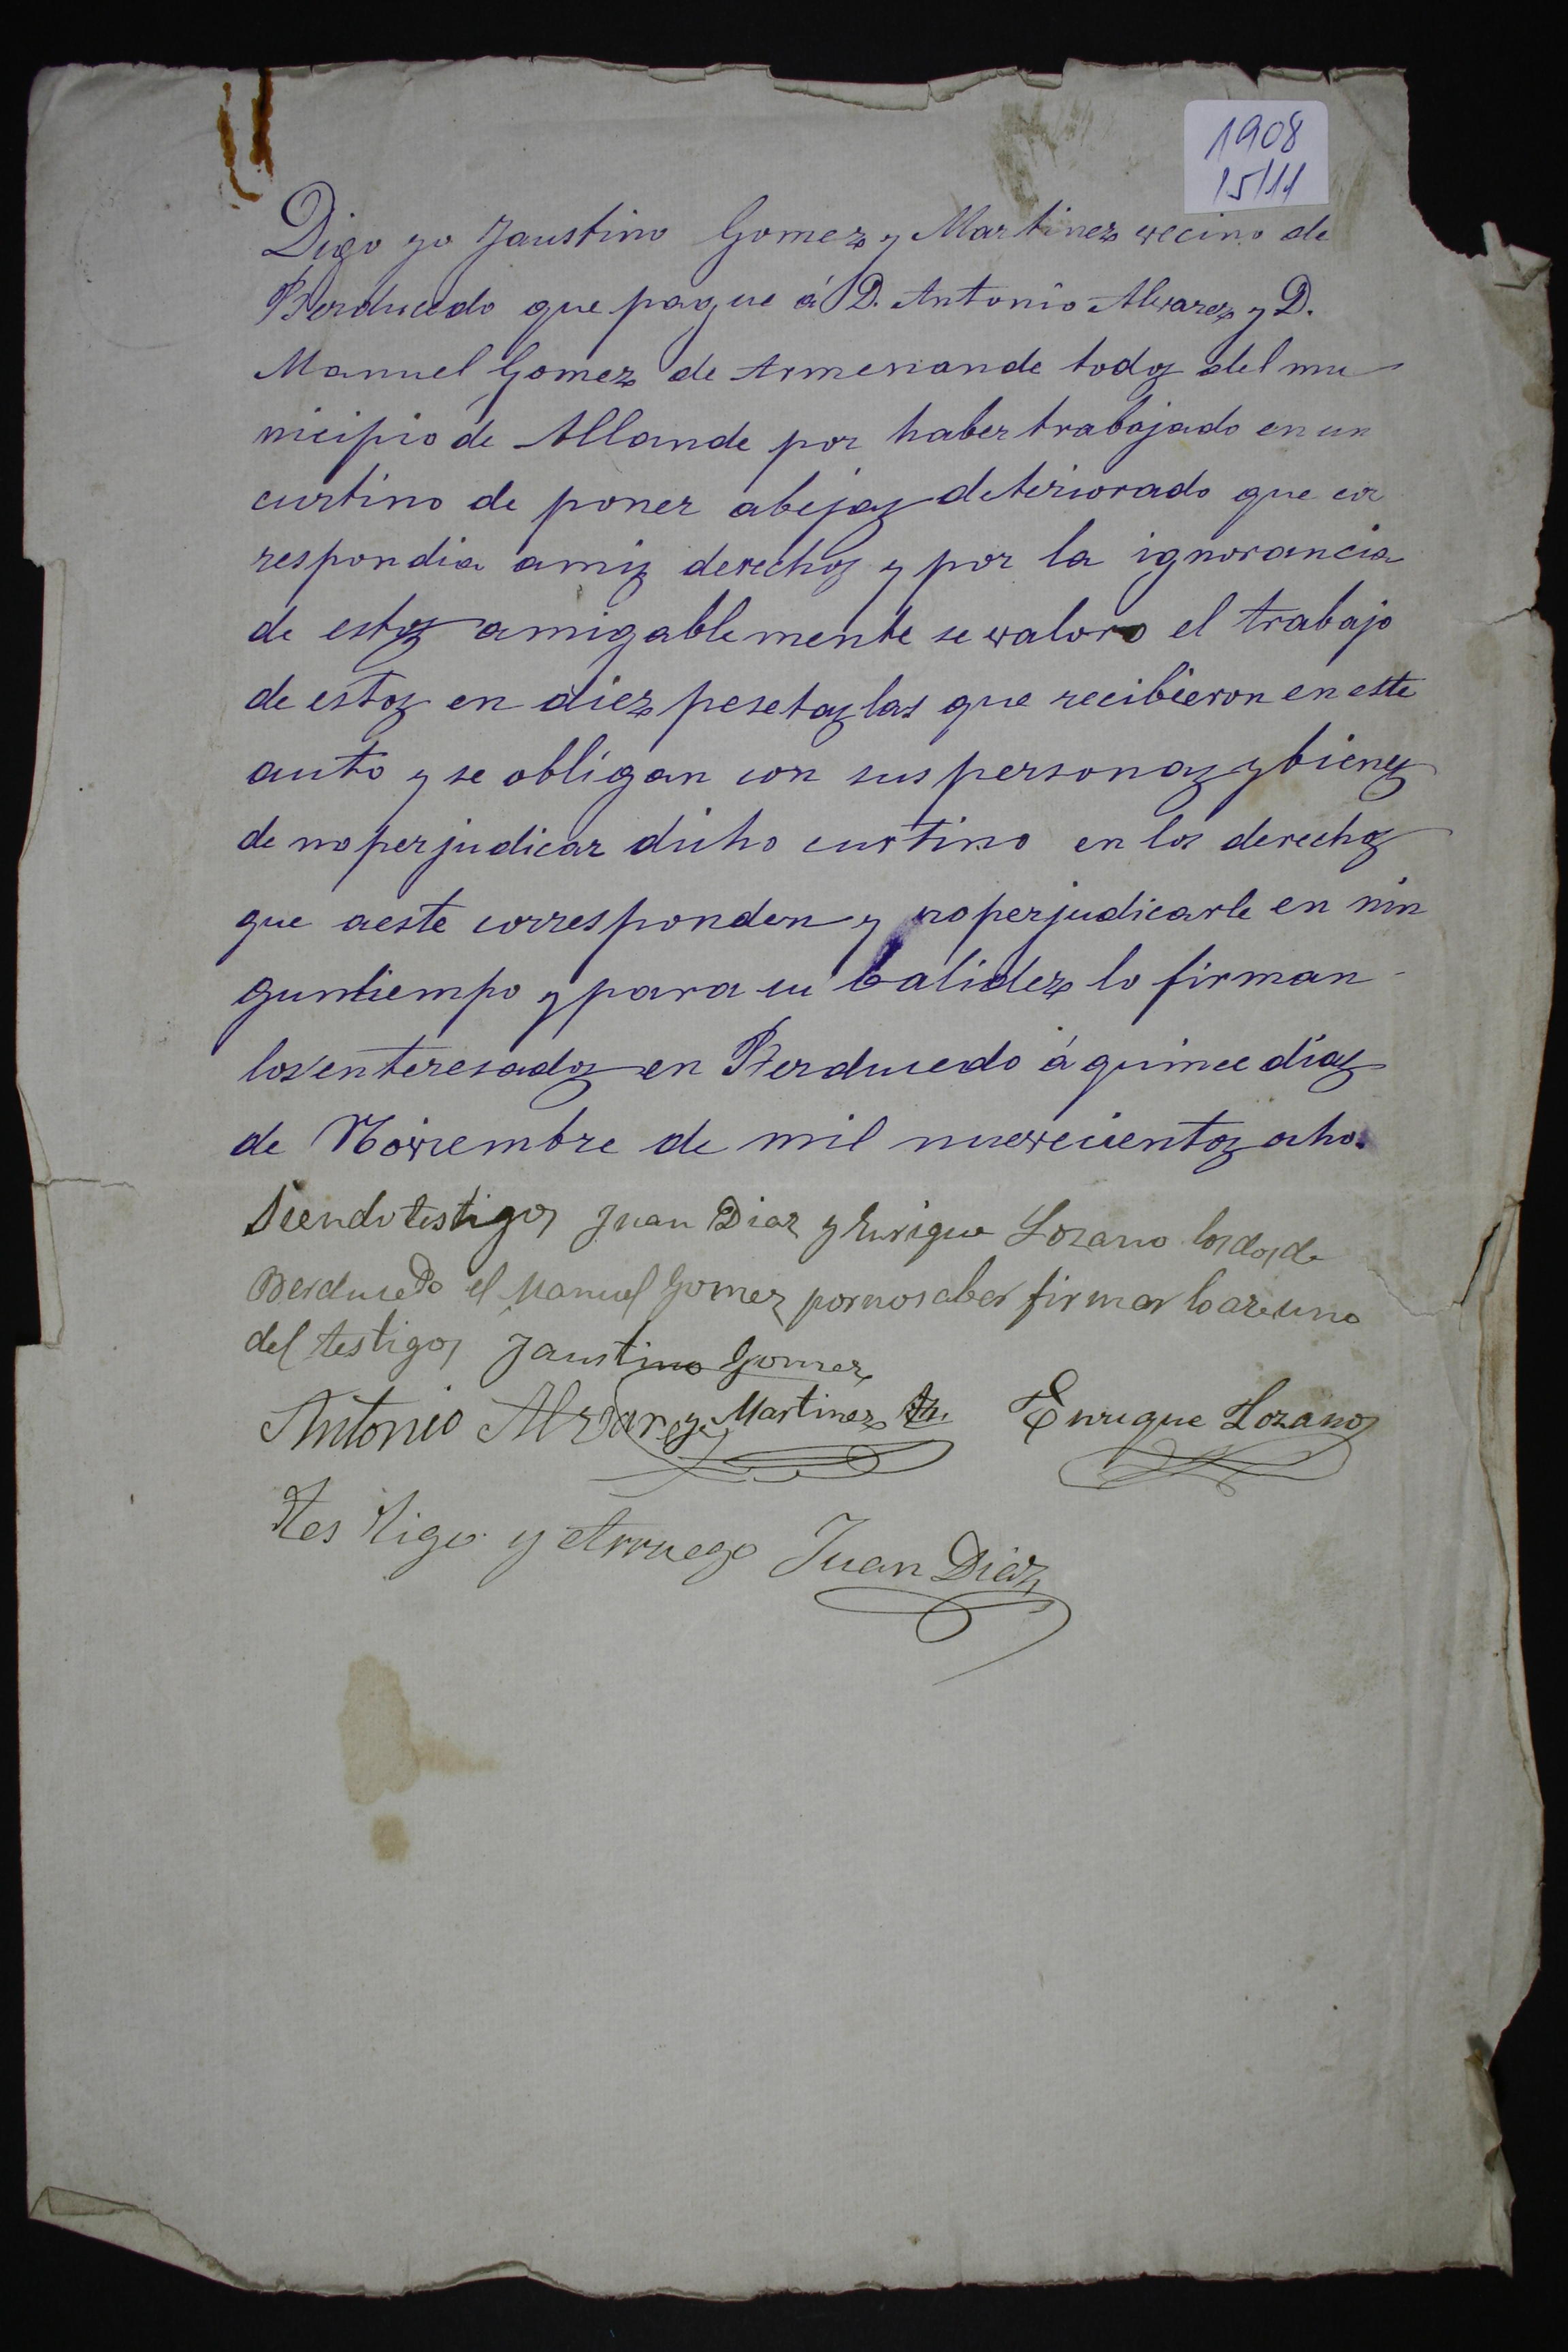 1908
15/11
Digo yo Faustino Gomez y Martinez vecino de
Berducedo que pague á D. Antonio Alvarez y D.
Manuel Gomez de Armenande todos del mu
nicipio de Allande por haber trabajado en un
curtino de poner abejas deteriorado que cor
respondia amis derechos y por la ignorancia
de estos amigablemente se valoro el trabajo
de estos en diez pesetas las que recibieron en este
auto y se obligan con sus personas y bienes
de no perjudicar dicho curtino en los derechos
que aeste corresponden y no perjudicarle en nin
guntiempo y para su balidez lo firman
los enteresados en Berducedo á quince días
de Noviembre de mil nuevecientos ocho.
Siendo testigos Juan Diaz y Enrique Lozano los dos de
Berducedo el Manuel Gomez por no saber firmar lo are uno
del testigos Faustino Gomez
Antonio Alvarez Martinez Enrique Lozano
Testigo y Arruego Juan Diaz